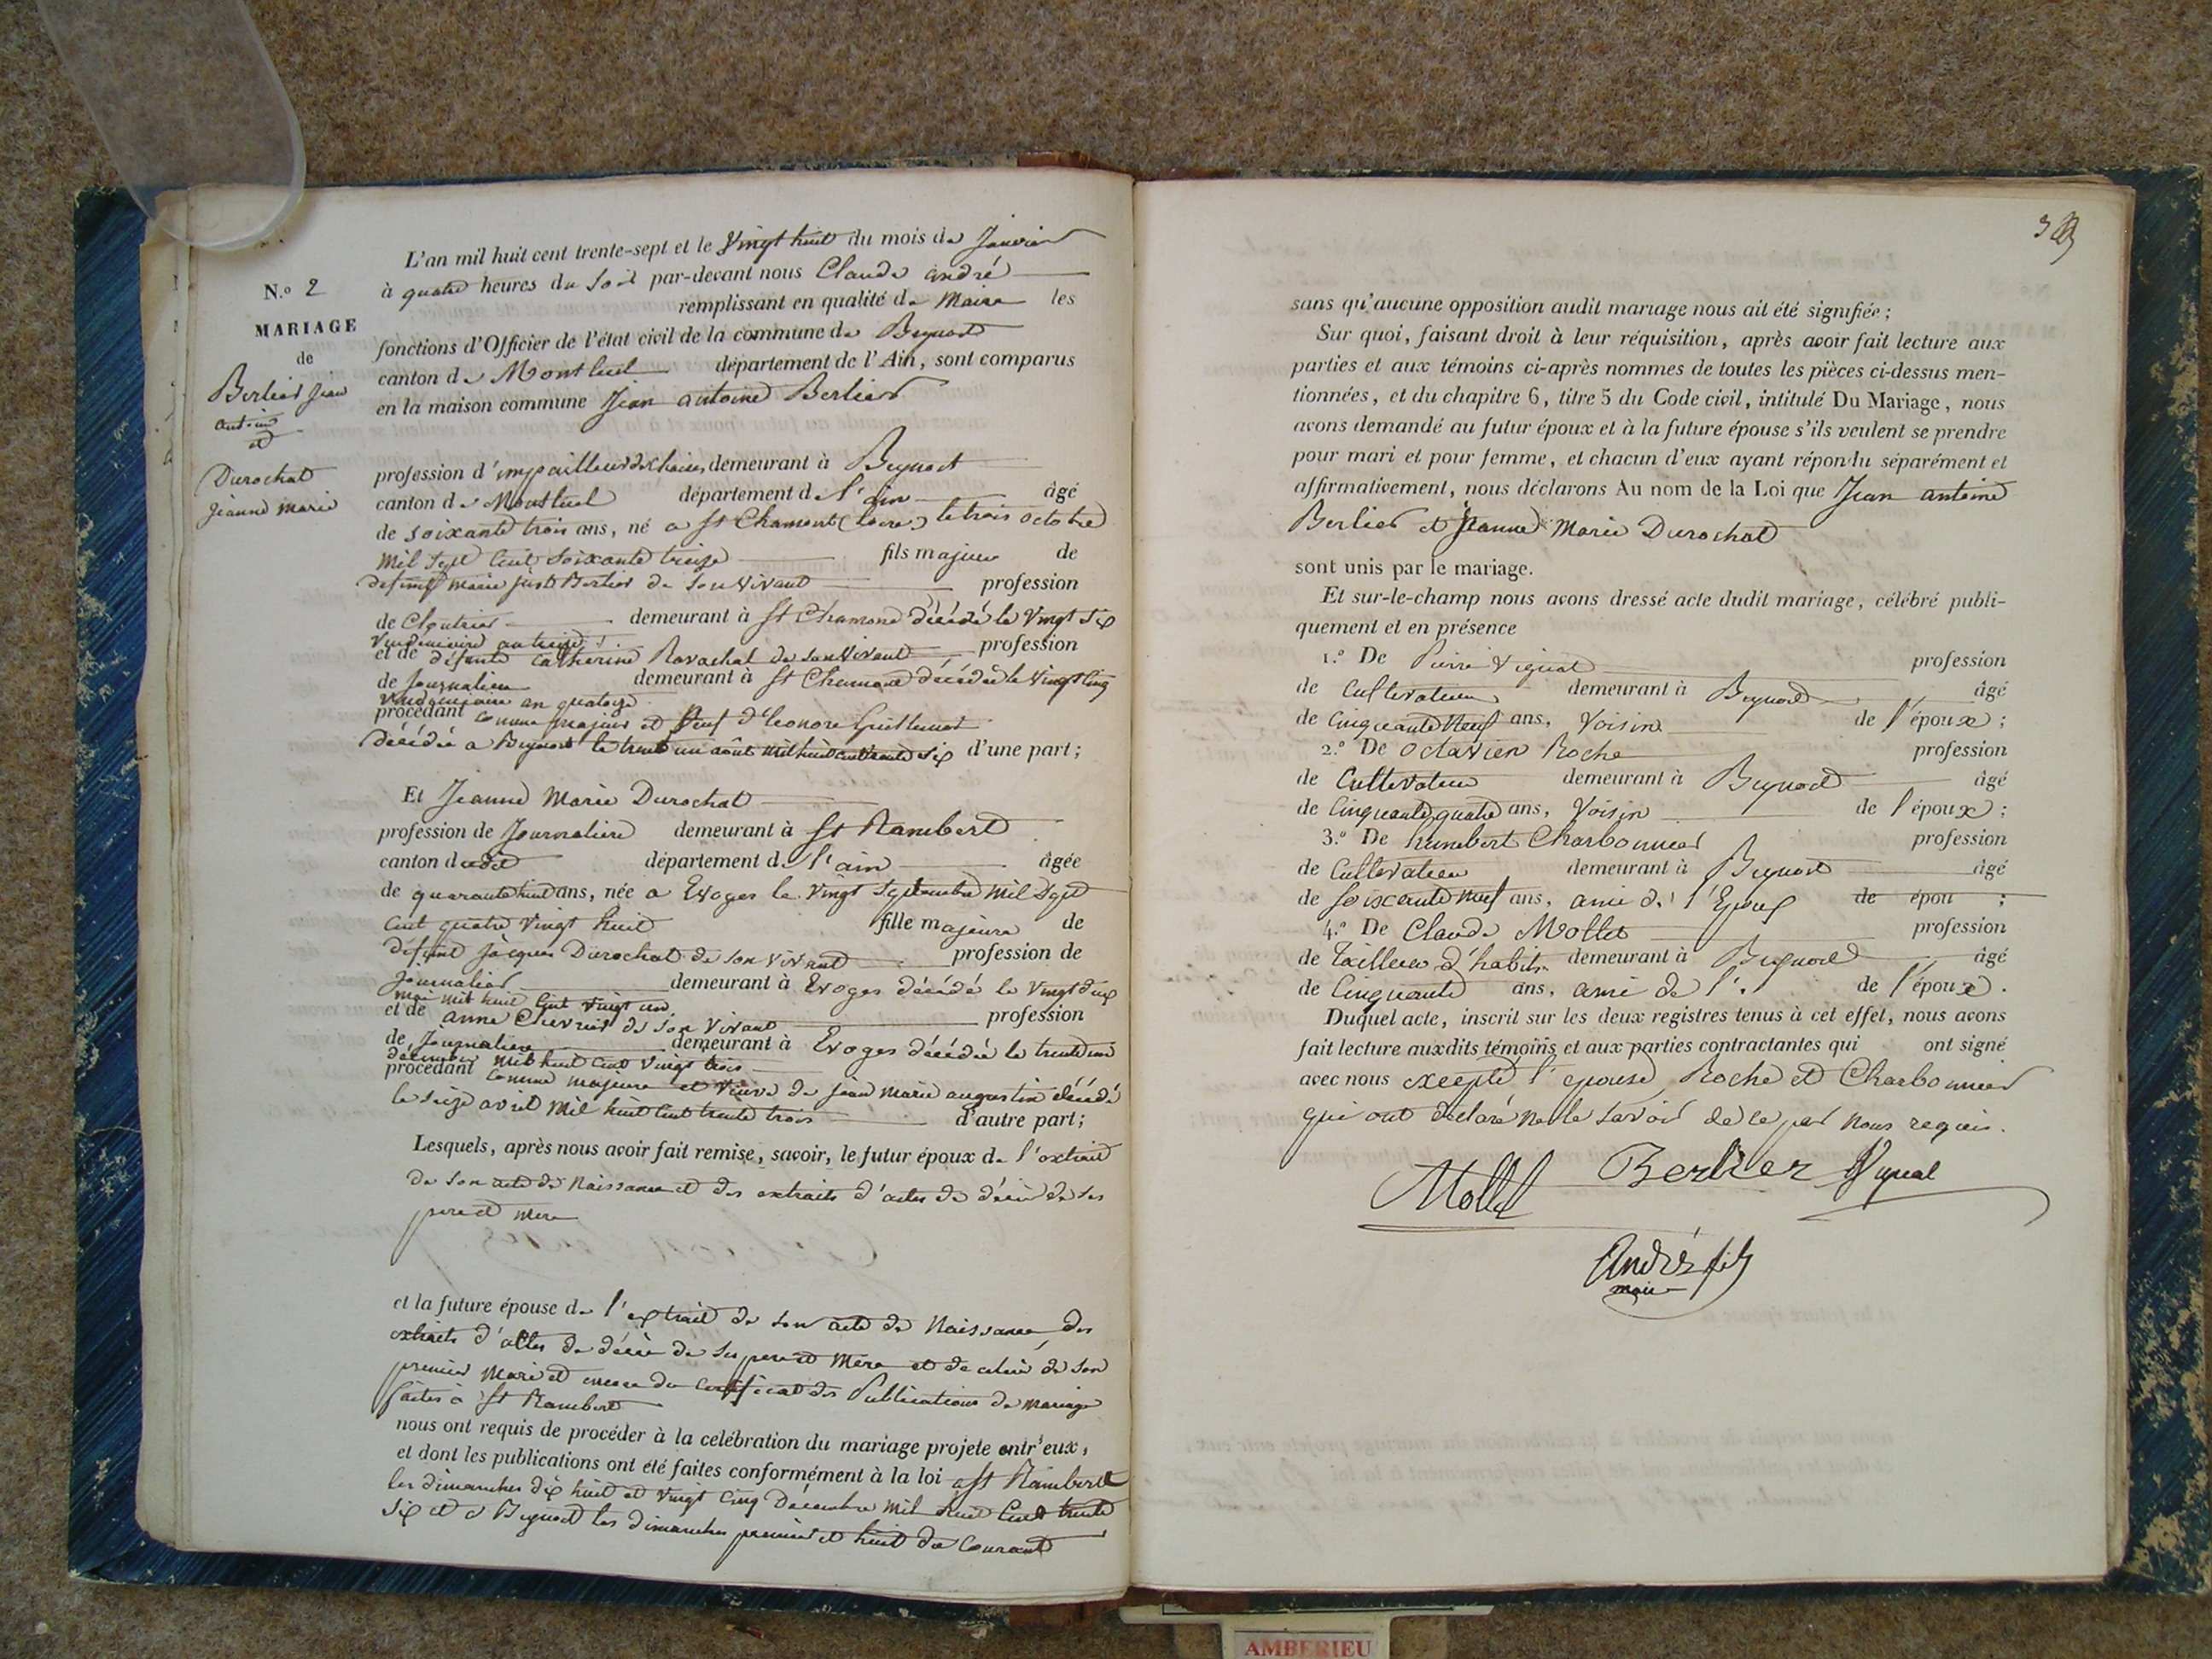 N.o 2
MARIAGE
de
Berlier Jean
antoine
et
Durochat
Jeanne Marie
L'an mil huit cent trente-sept et le Vingt huit du mois de Janvier
à quatre heures du soir par-devant nous Claude andré
remplissant en qualité de Maire les
fonctions d'Officier de l'état civil de la commune de Beynost
canton de Montluel département de l'Ain, sont comparus
en la maison commune Jean antoine Berlier
profession d'empailleur de chaises, demeurant à Beynost
canton de Montluel département de l'ain âgé
de soixante trois ans, né a St Chamont (Loire) le trois octobre
Mil Sept Cent soixante treize fils majeur de
defunt marie just Berlier de son vivant profession
de Cloutrier demeurant à St Chamond décédé le Vingt Six
Vendemiaire an treize
et de défunte Catherine Ravachat de son vivant profession
de Journaliere demeurant à St Chamond décédée le Vingt Cinq
Vendemiaire an quatorze
procédant comme majeur et Veuf d'Eleonore Guillemot
décédée a Beynost le trente un août mil huit cent trente six d'une part;
Et Jeanne Marie Durochat
profession de Journaliere demeurant à St Rambert
canton dudit département de l'ain âgée
de quarante huit ans, née a Evoges le Vingt Septembre Mil Sept
Cent quatre Vingt huit fille majeure de
défunt Jacques Durochat de son vivant profession de
Journalier demeurant à Evoges décédé le Vingt deux
mai mil huit Cent vingt un
et de anne Chevrier de son Vivant profession
de Journaliere demeurant à Evoges décédée le trente un
décembre Mil huit cent vingt trois
procédant comme majeure et Veuve de Jean Marie augustin décédé
le seize avril Mil huit Cent trente trois d'autre part;
Lesquels, après nous avoir fait remise, savoir, le futur époux de l'extrait
de son acte de Naissance et des extraits d'actes de décès de ses
pere et mere
et la future épouse de l'extrait de son acte de Naissance, des
extraits d'actes de décès de ses pere et mere et de celui de son
premier Mari et encore du certificat des Publications de mariage
faites à St Rambert
nous ont requis de procéder à la celébration du mariage projete entr'eux,
et dont les publications ont été faites conformément à la loi a St Rambert
les dimanches dix huit et Vingt cinq décembre mil huit Cent trente
Six et a Beynost les dimanches premier et huit du Courant
sans qu'aucune opposition audit mariage nous ait été signifiée;
Sur quoi, faisant droit à leur réquisition, après avoir fait lecture aux
parties et aux témoins ci-après nommes de toutes les pièces ci-dessus men-
tionnées, et du chapitre 6, titre 5 du Code civil, intitulé Du Mariage, nous
avons demandé au futur époux et à la future épouse s'ils veulent se prendre
pour mari et pour femme, et chacun d'eux ayant répondu séparément et
affirmativement, nous déclarons Au nom de la Loi que Jean antoine
Berlier et Jeanne Marie Durochat
sont unis par le mariage.
Et sur-le-champ nous avons dressé acte dudit mariage, célébré publi-
quement et en présence
1.o De Pierre Vignat profession
de Cultivateur demeurant à Beynost âgé
de Cinquante Neuf ans, Voisin de l'époux;
2.o De Octavien Roche profession
de Cultivateur demeurant à Beynost âgé
de Cinquante quatre ans, Voisin de l'époux;
3.o De humbert Charbonnier profession
de Cultivateur demeurant à Beynost âgé
de Soixante neuf ans, ami de l'Epoux de épou ;
4.o De Claude Mollet profession
de Tailleur d'habits demeurant à Beynost âgé
de Cinquante ans, ami de l'. de l'époux.
Duquel acte, inscrit sur les deux registres tenus à cet effet, nous avons
fait lecture auxdits témoins et aux parties contractantes qui ont signé
avec nous excepté l'epouse, Roche et Charbonnier
qui ont déclaré ne le savoir de ce par nous requis.
Mollet Berlier Vignat
André fils
maire
AMBERIEU